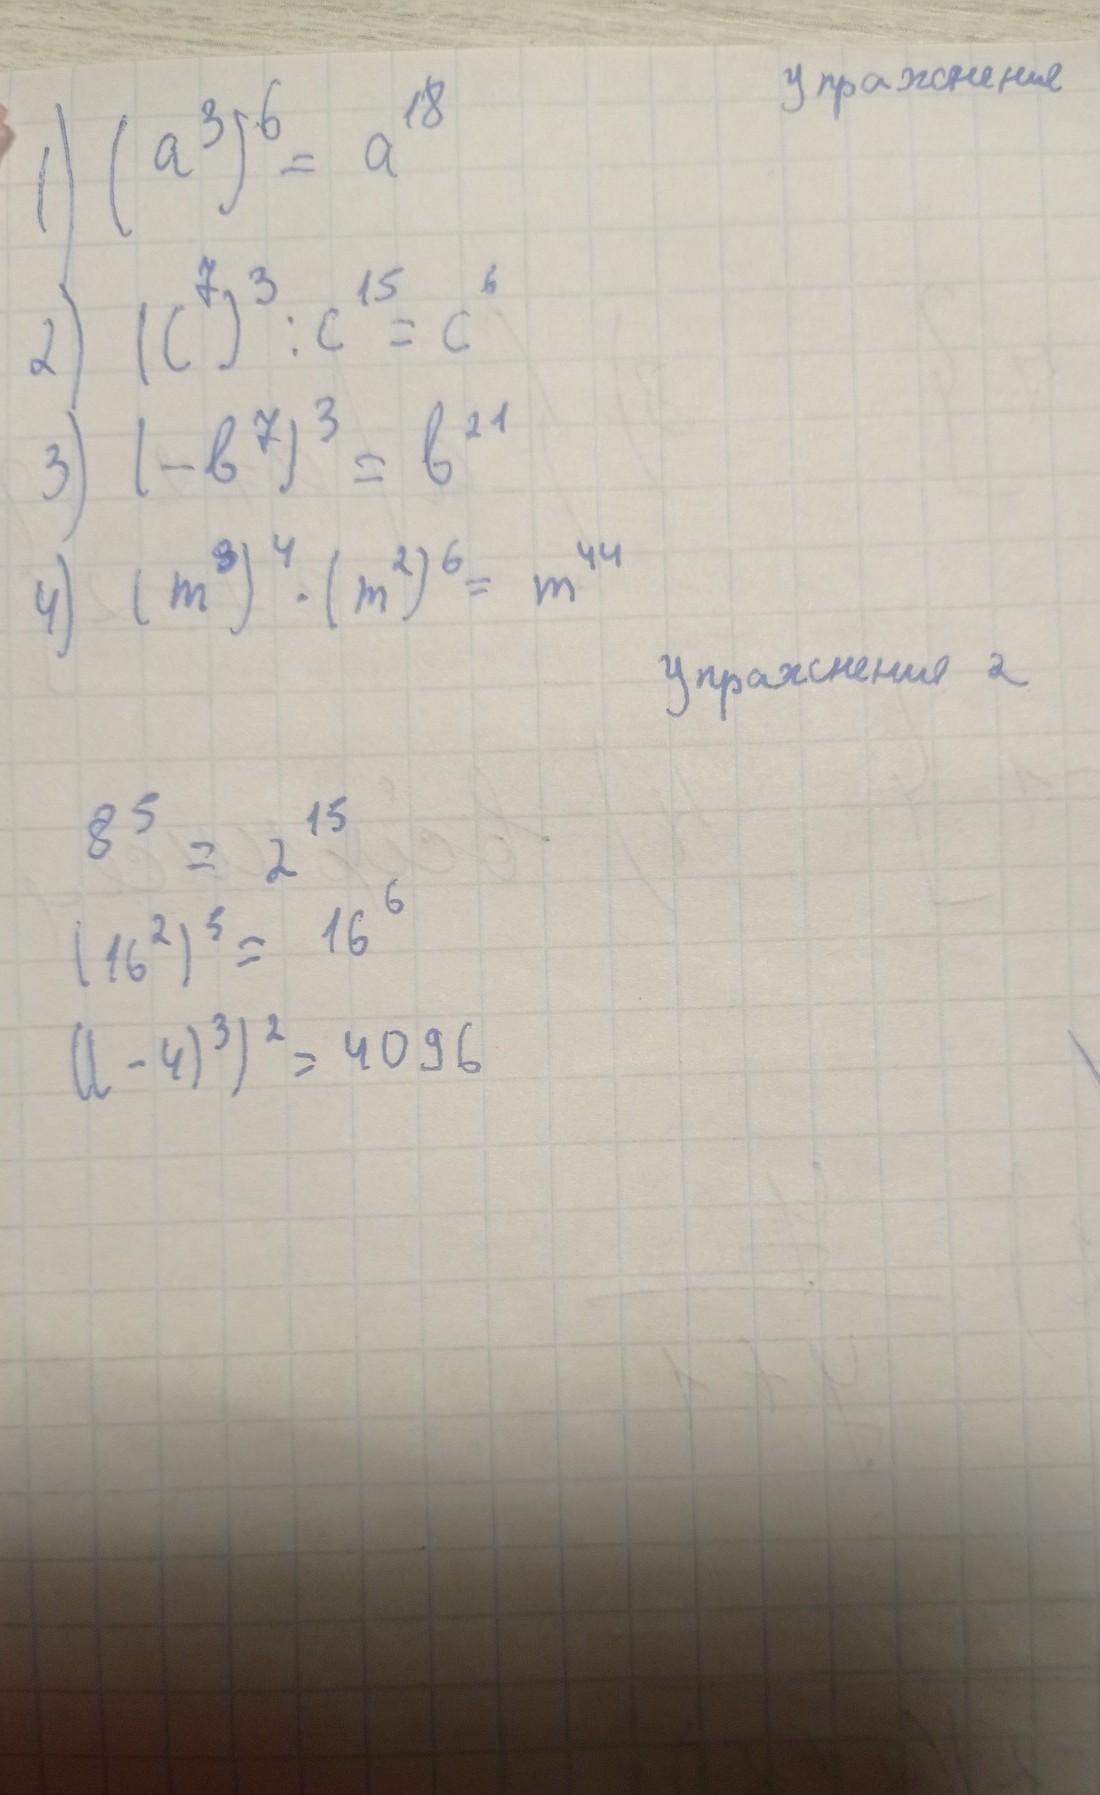 упражнения
1) (a³)⁶ = a¹⁸
2) (c⁷)³ : c¹⁵ = c⁶
3) (-b⁷)³ = b²¹
4) (m⁸)⁴ · (m²)⁶ = m⁴⁴
упражнения 2
8⁵ = 2¹⁵
(16²)⁵ = 16⁶
((-4)³)² = 4096